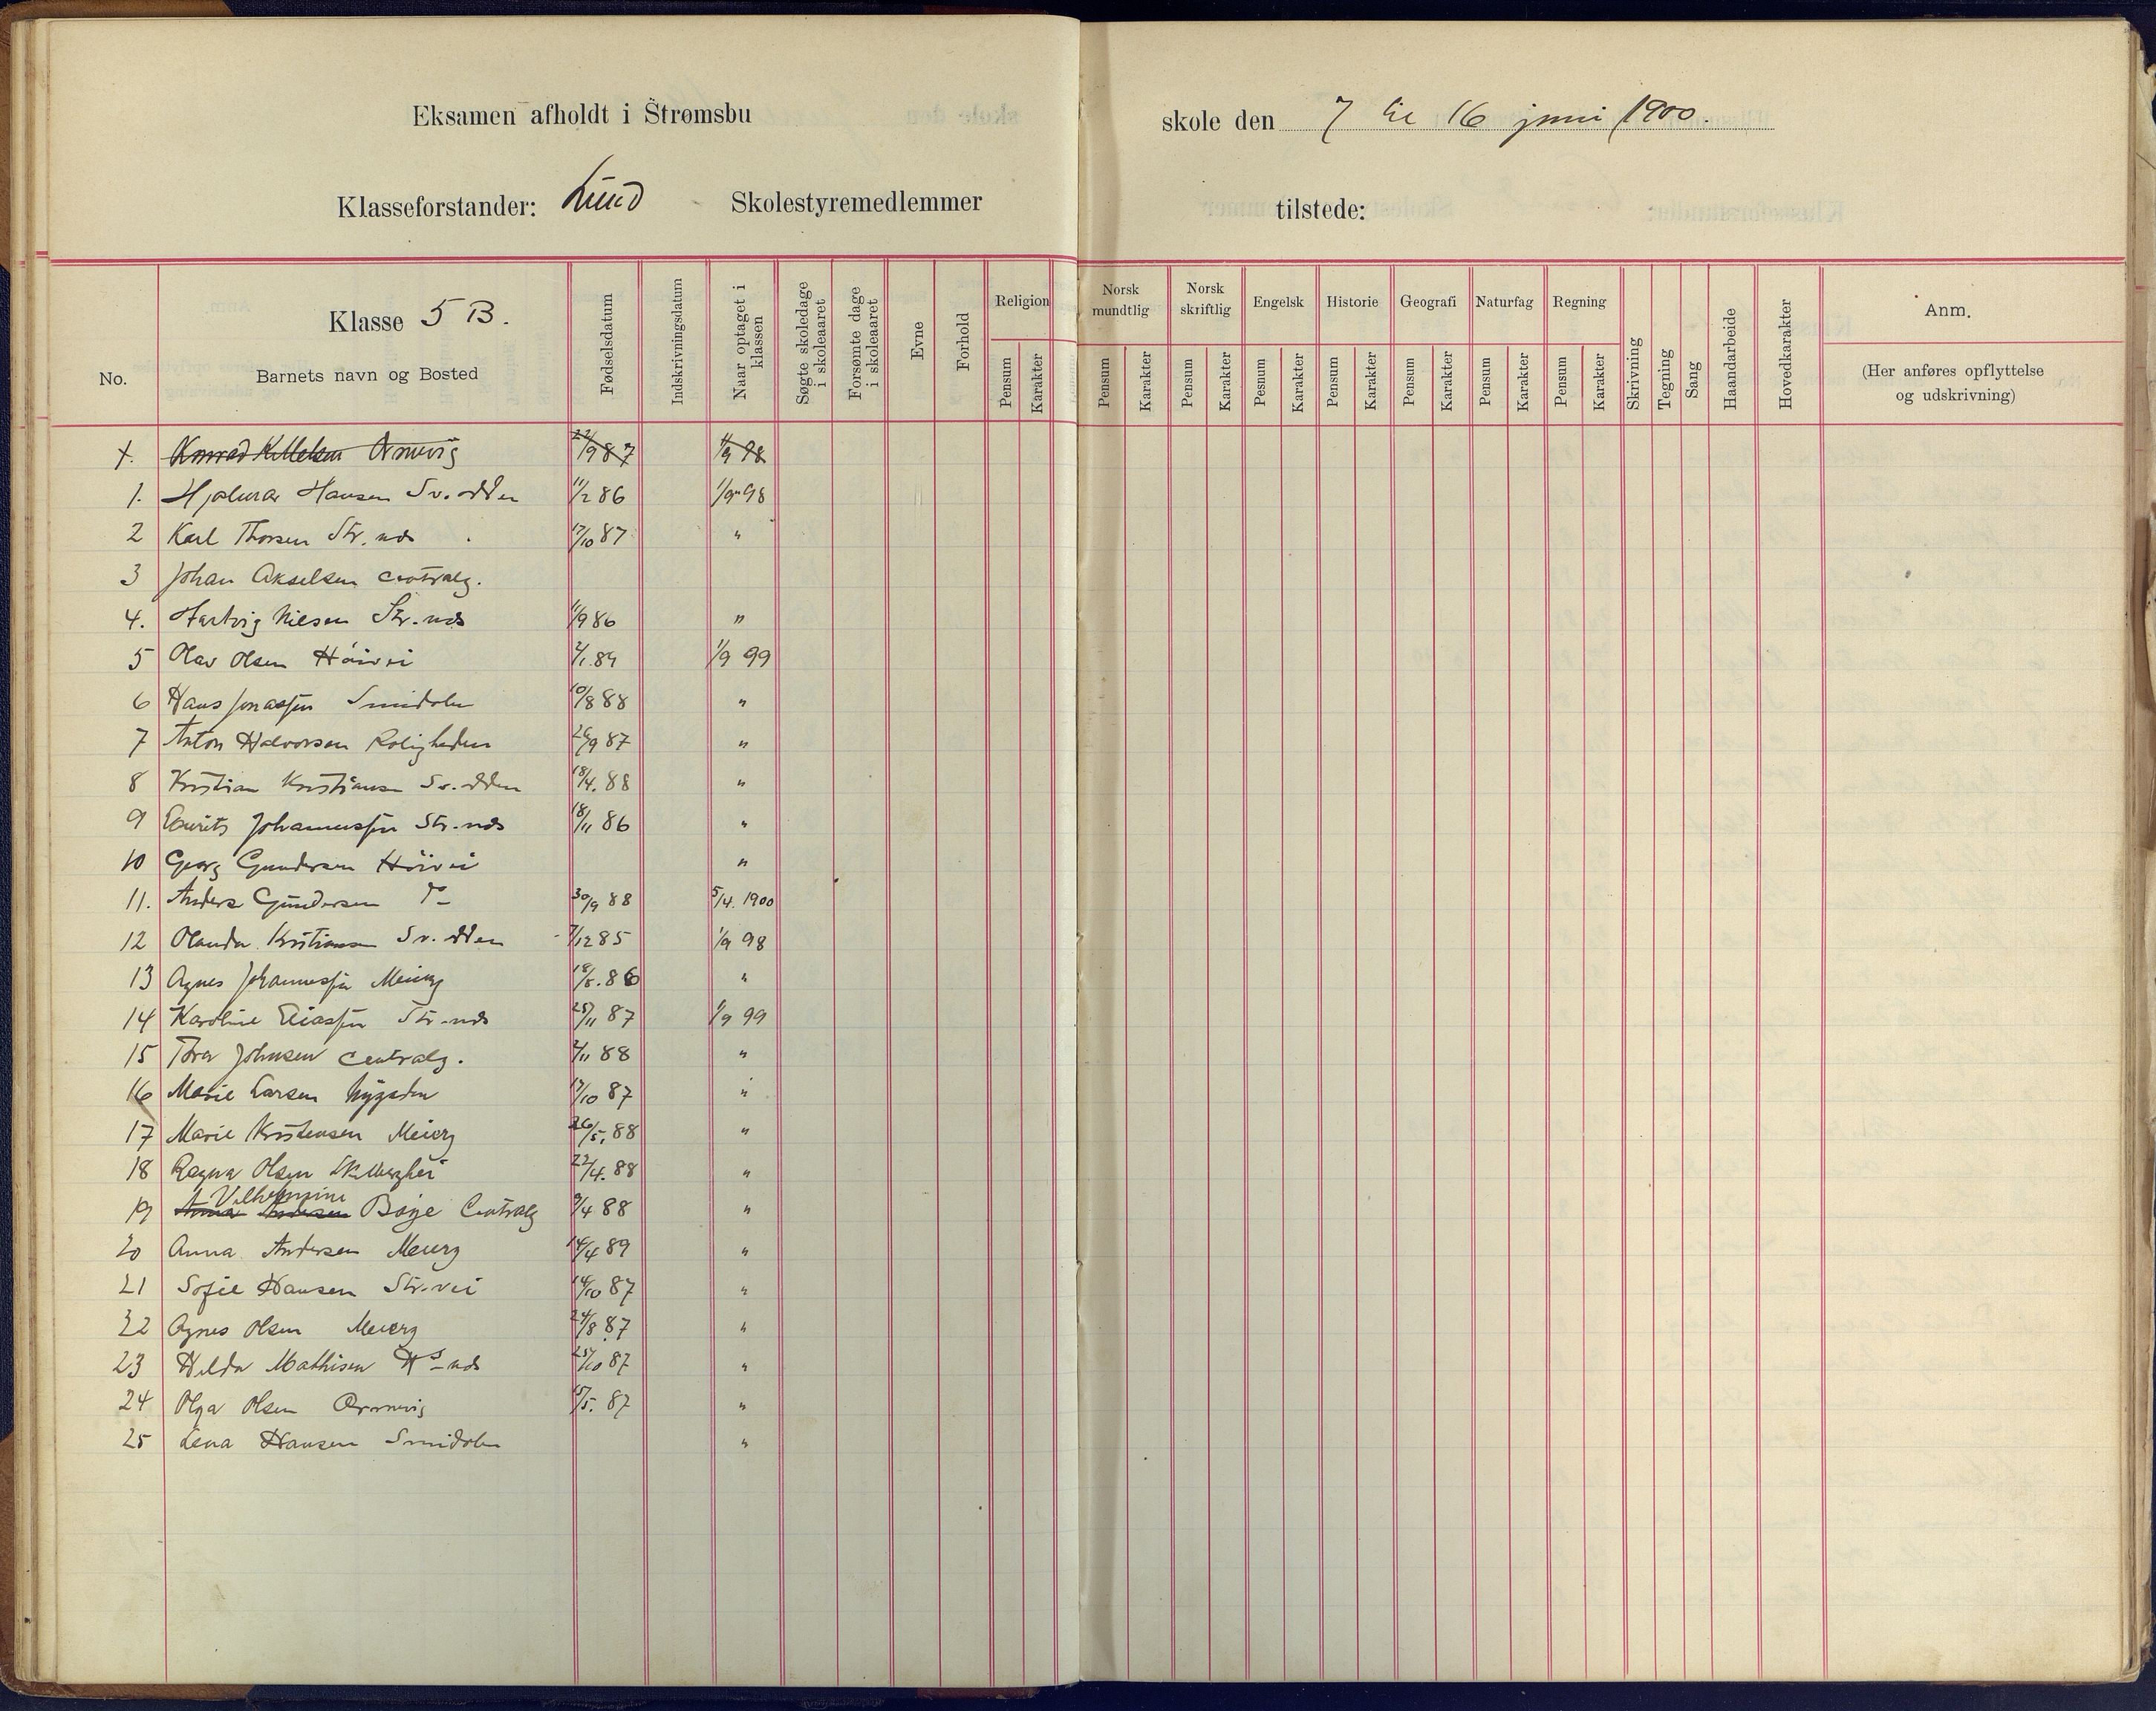 Eksamen afholdt i Strømsbu skole den 7 til 16 juni 1900.
Klasseforstander: Lund Skolestyremedlemmer tilstede:
No.
Klasse 5 B.
Barnets navn og Bosted
Fødselsdatum
Indskrivningsdatum
Naar optaget i klassen
Søgte skoledage i skoleaaret
Forsømte dage i skoleaaret
Evne
Forhold
Religion
Pensum
Karakter
Norsk mundtlig
Pensum
Karakter
Norsk skriftlig
Pensum
Karakter
Engelsk
Pesnum
Karakter
Historie
Pensum
Karakter
Geografi
Pensum
Karakter
Naturfag
Pensum
Karakter
Regning
Pensum
Karakter
Skrivning
Tegning
Sang
Haandarbeide
Hovedkarakter
Anm.
(Her anføres opflyttelse og udskrivning)
Konrad Kittelsen 22/9 87 1/9 98
1. Hjalmar Hansen Sv. odden 11/2 86 1/9 98
2 Karl Thorsen Str. nds 17/10 87 "
3 Johan Akselsen Centralg.
4. Hartvig Nilsen Str. nds 11/9 86 "
5 Olav Olsen Höivei 2/1. 89 1/9 99
6 Hans Jonassen Smidalen 10/8 88 "
7 Anton Halvorsen Roligheden 26/9 87 "
8 Kristian Kristiansen Sv. odden 18/4. 88 "
9 Johannessen Str. nds 18/11 86 "
10 Georg Gundersen Höivei "
11. Anders Gundersen do 30/9 88 5/4. 1900
12 Olanda Kristiansen Sv. odden 7/12 85 1/9 98
13 Agnes Johannessen Meierg 18/8. 86 "
14 Karoline Eliassen Str. nds 25/11 87 1/9 99
15 Tora Johnsen Centralg. 2/11 88 "
16 Marie Larsen Nygaden 17/10 87 "
17 Marie Kristensen Meierg 26/5. 88 "
18 Ragna Olsen 22/4. 88 "
19 Anna Andersen Vilhelmine Bøje Centralg 9/4 88 "
20 Anna Andersen Meierg 14/4 89 "
21 Sofie Hansen Str. vei 14/10 87 "
22 Agnes Olsen Meierg 24/8 87 "
23 Hilda Mathisen 25/10 87 "
24 Olga Olsen 15/5. 87 "
25 Lena Hansen Smidalen "